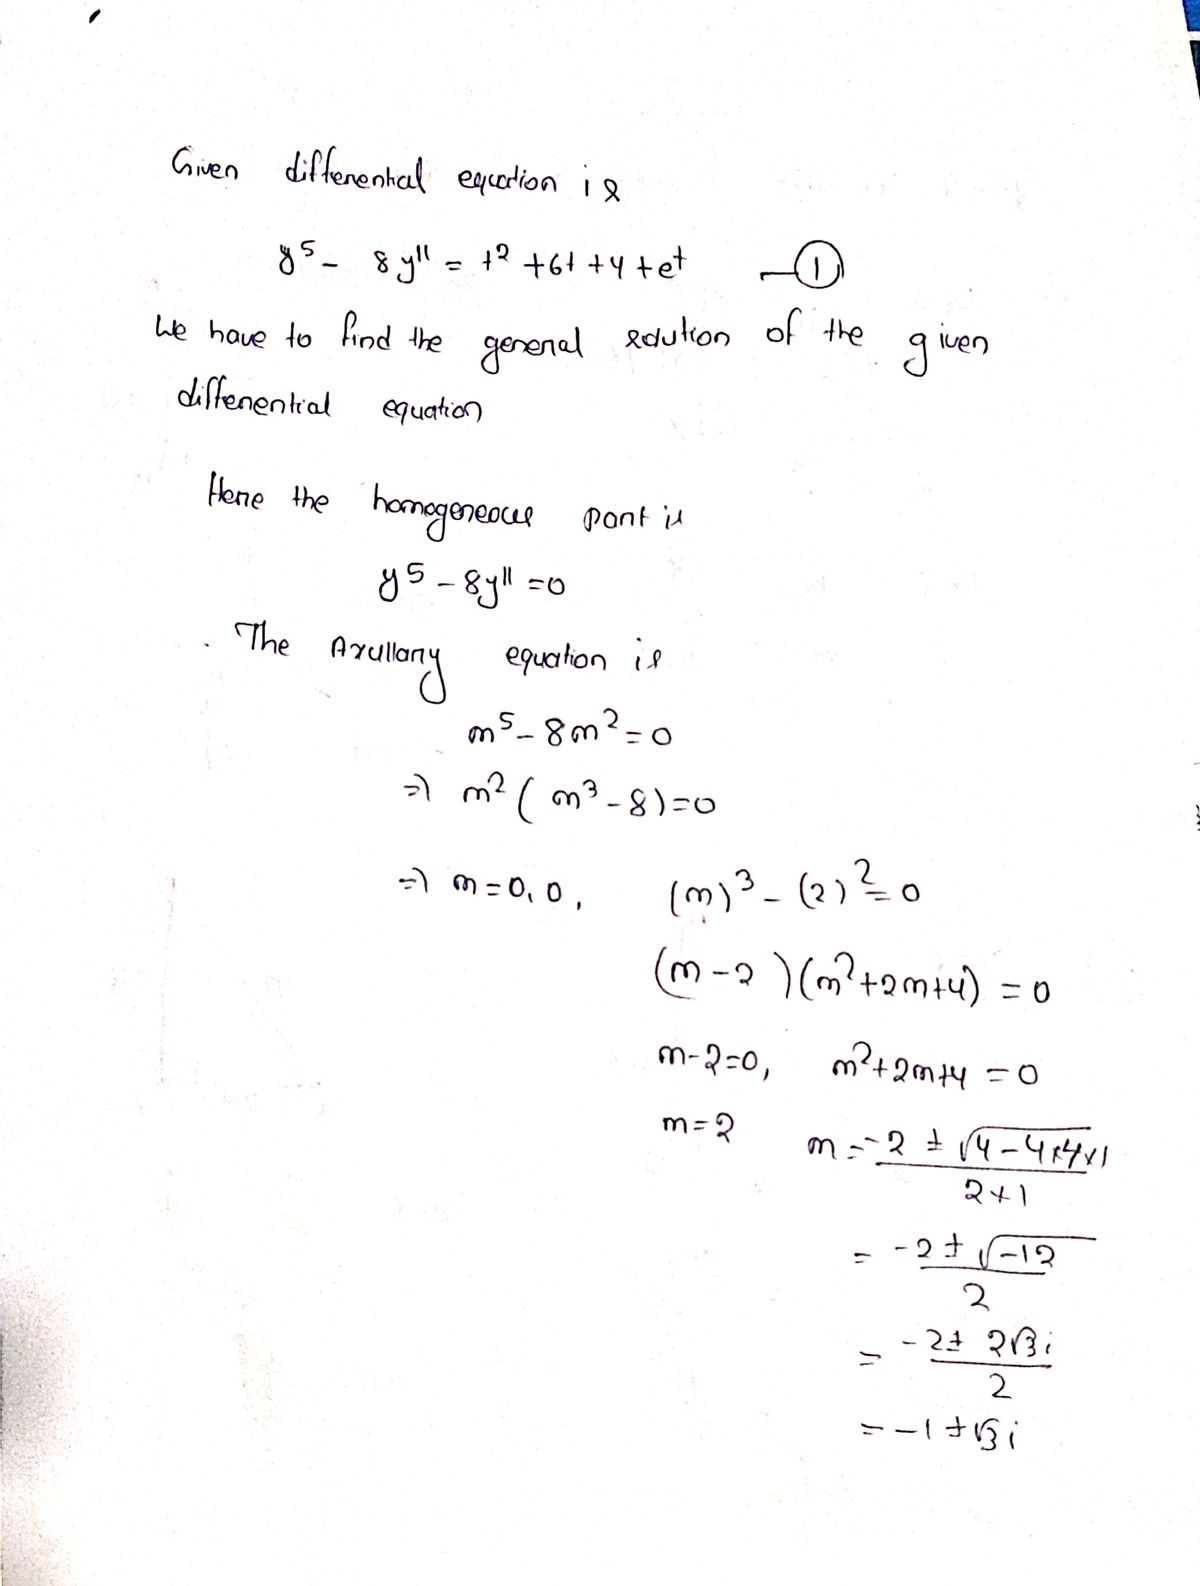 Given differential equation is
y⁵ - 8y'' = t² + 6t + 4 + eᵗ — ①
We have to find the general solution of the given
differential equation
Here the homogeneous part is
y⁵ - 8y'' = 0
The Axullary equation is
m⁵ - 8m² = 0
⇒ m² ( m³ - 8) = 0
⇒ m = 0, 0, (m)³ - (2)² = 0
(m - 2 ) (m² + 2m + 4) = 0
m - 2 = 0, m² + 2m + 4 = 0
m = 2 m = (-2 ± √(4 - 4×4×1)) / (2×1)
= (-2 ± √(-12)) / 2
= (-2 ± 2√3 i) / 2
= -1 ± √3 i